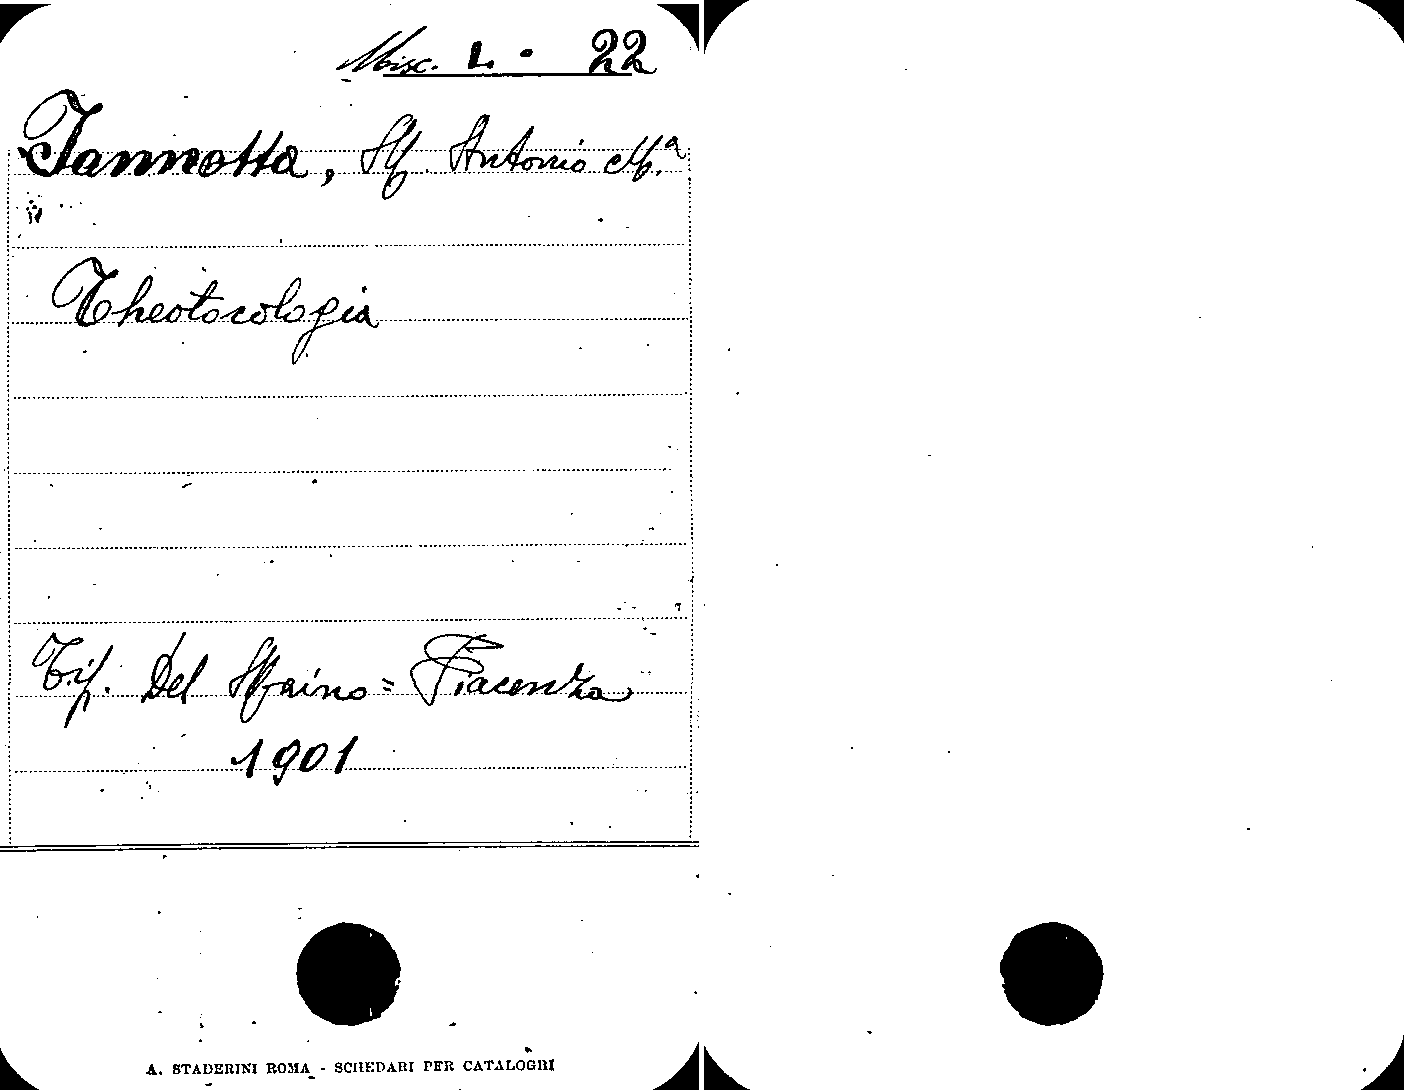 Misc. L. - 22
Iannotta, M. Antonio M.ª
Theotocologia
Tip. Del Maino = Piacenza
1901
A. STADERINI ROMA - SCHEDARI PER CATALOGHI